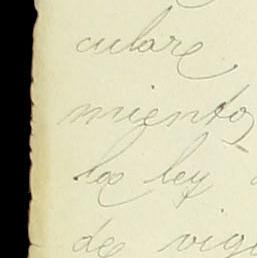 culare
miento,
la ley
de vige